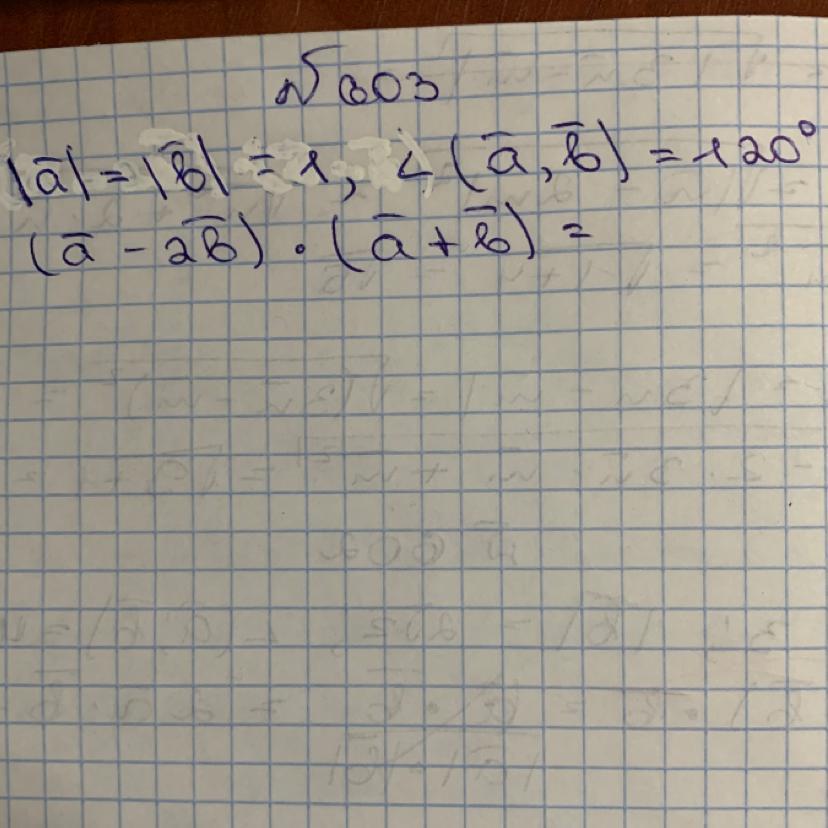 № 603
|a̅| = |b̅| = 1, ∠(a̅, b̅) = 120°
(a̅ - 2b̅) · (a̅ + b̅) =